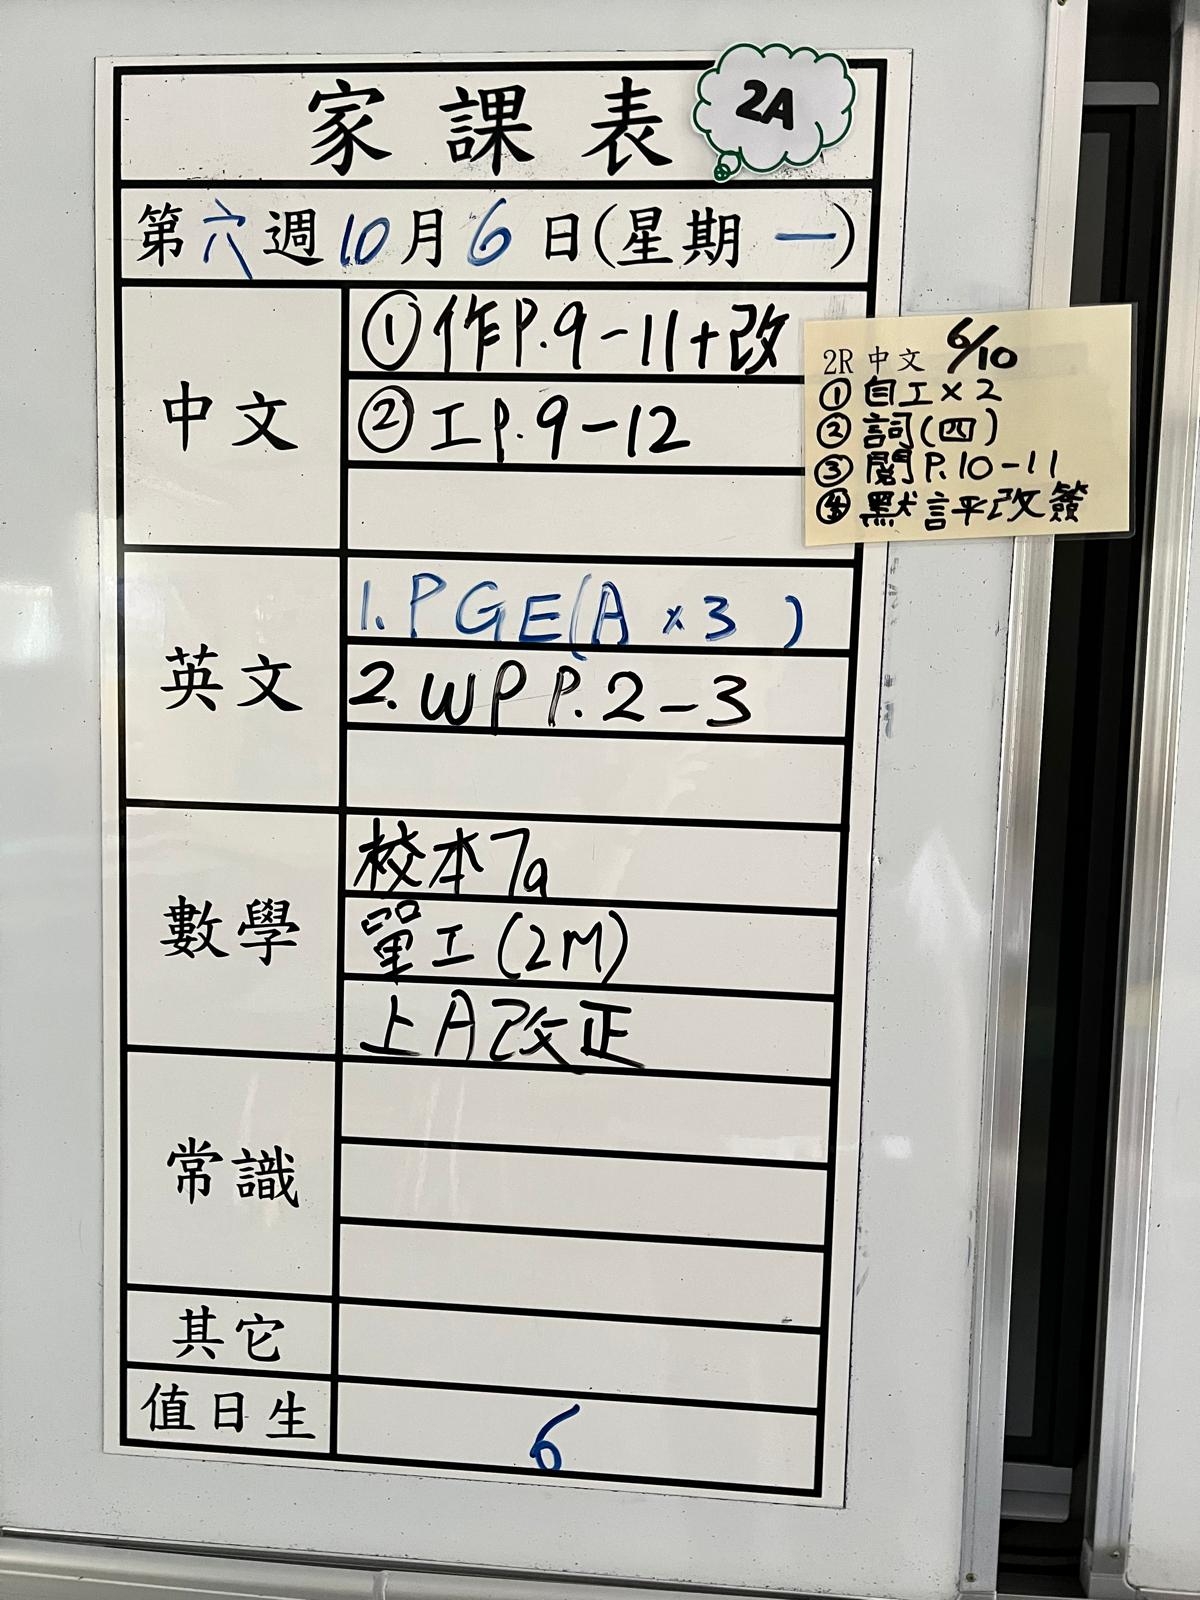 家課表
2A
第六週10月6日(星期一)
中文
①作P.9-11+改
②工P.9-12
2R中文 6/10
①自工×2
②詞(四)
③閱P.10-11
④默評改簽
英文
1.PGE(A×3)
2.WP P.2-3
數學
校本7a
單工(2M)
上A改正
常識
其它
值日生
6